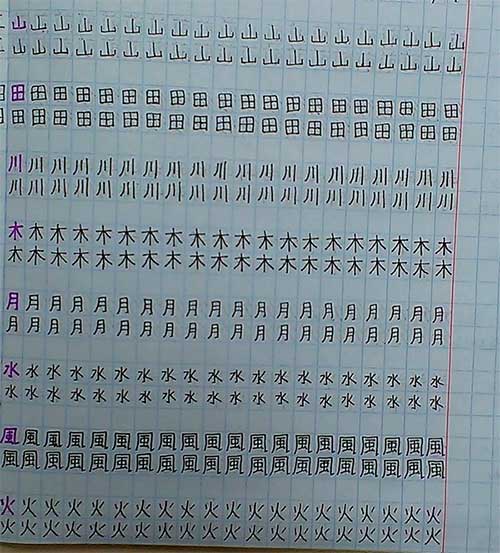 山山山山山山山山山山山山山山山山山山山山
山山山山山山山山山山山山山山山山山山山山
田田田田田田田田田田田田田田田田田田田田
田田田田田田田田田田田田田田田田田田田田
川川川川川川川川川川川川川川川川川川川川
川川川川川川川川川川川川川川川川川川川川
木木木木木木木木木木木木木木木木木木木木
木木木木木木木木木木木木木木木木木木木木
月月月月月月月月月月月月月月月月月月月月
月月月月月月月月月月月月月月月月月月月月
水水水水水水水水水水水水水水水水水水水水
水水水水水水水水水水水水水水水水水水水水
風風風風風風風風風風風風風風風風風風風風
風風風風風風風風風風風風風風風風風風風風
火火火火火火火火火火火火火火火火火火火火
火火火火火火火火火火火火火火火火火火火火